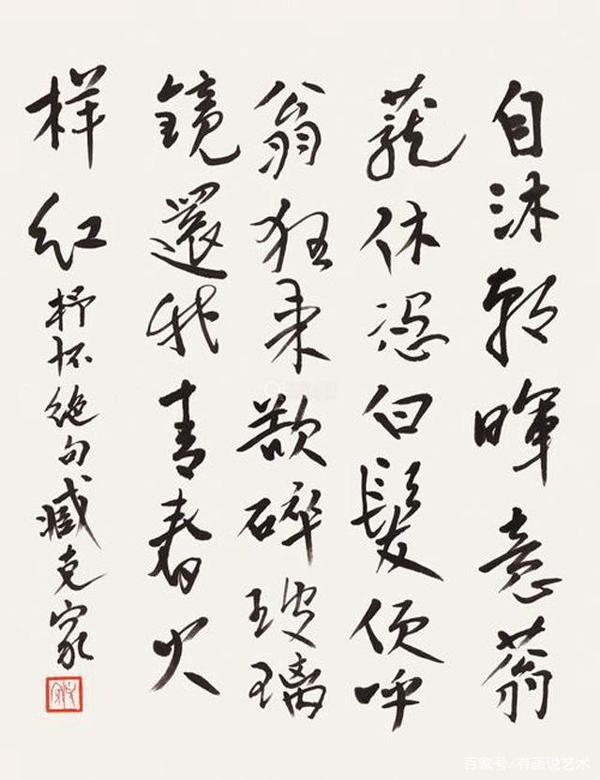 自沐朝暉意蓊
蘢休憑白髮便呼
翁狂來欲碎玻璃
鏡還我青春火
樣紅 抒怀絕句臧克家
百家号/有画说艺术